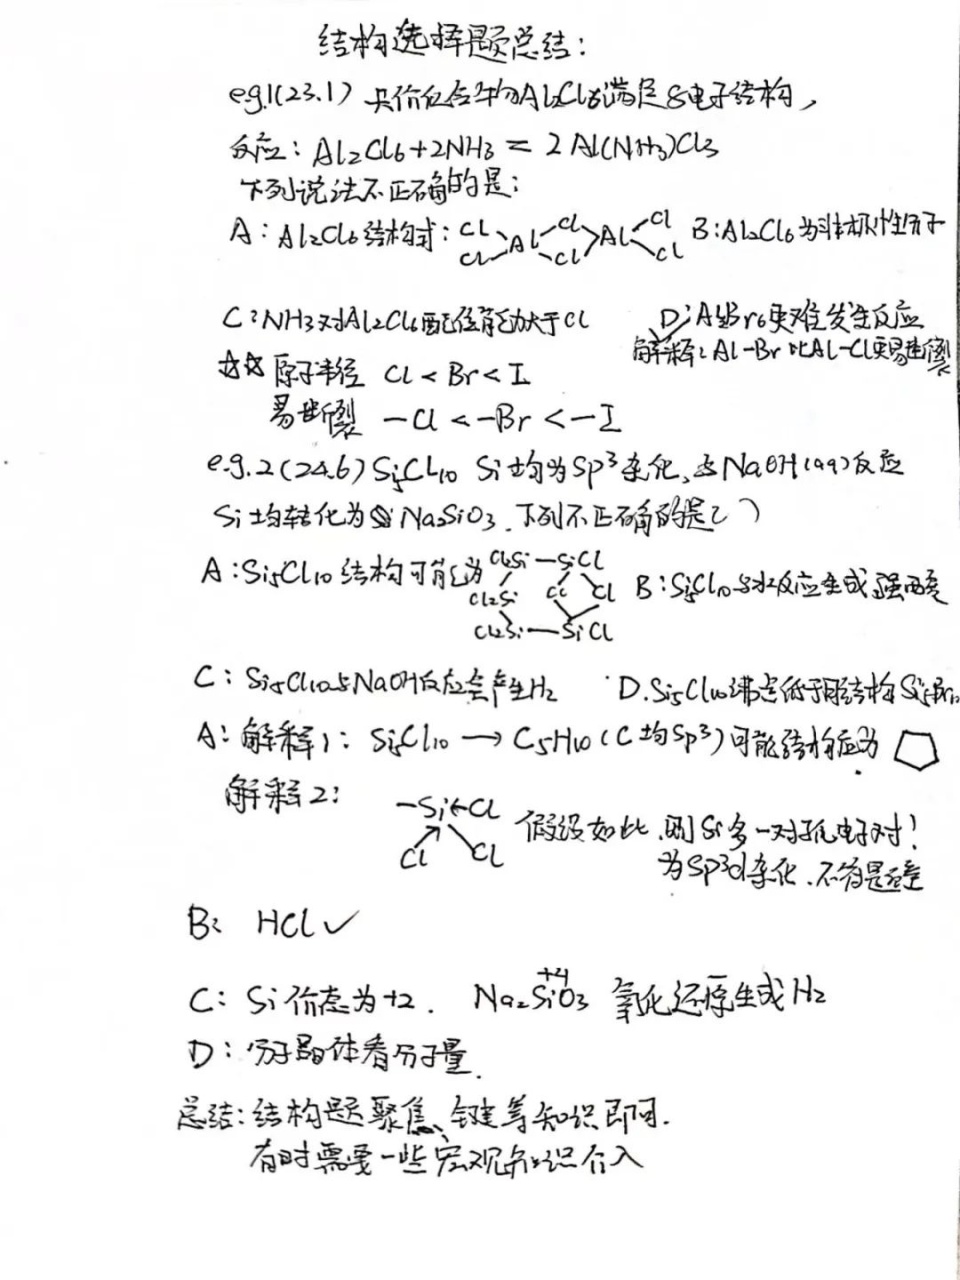 结构选择题总结:
e.g.1(23.1) 共价化合物Al2Cl6满足8电子结构,
反应: Al2Cl6+2NH3 = 2Al(NH3)Cl3
下列说法不正确的是:
A: Al2Cl6结构式: Cl Cl Al Cl Cl Al Cl Cl B:Al2Cl6为非极性分子
C:NH3对Al2Cl6配位能力大于Cl D:Al2Br6更难发生反应
解释: Al-Br比Al-Cl更易断裂
☆☆ 原子半径 Cl < Br < I
易断裂 -Cl < -Br < -I
e.g.2(24.6) Si5Cl10 Si均为sp3杂化,与NaOH(aq)反应
Si均转化为Na2SiO3.下列不正确的是( )
A:Si5Cl10结构可能为 Cl2Si — SiCl Cl2Si Cl Cl Cl2Si — SiCl B:Si5Cl10与水反应生成强酸
C: Si5Cl10与NaOH反应会产生H2 D.Si5Cl10沸点低于同结构Si5Br10
A: 解释1: Si5Cl10 → C5H10(C均sp3)可能结构应为
解释2: -Si←Cl Cl Cl 假设如此,则Si多一对孤电子对!
为sp3d杂化.不符合题意
B: HCl ✓
C: Si价态为+2. Na2SiO3 +4 氧化还原生成H2
D: 分子晶体看分子量.
总结:结构题聚焦、键等知识即可.
有时需要一些宏观知识介入